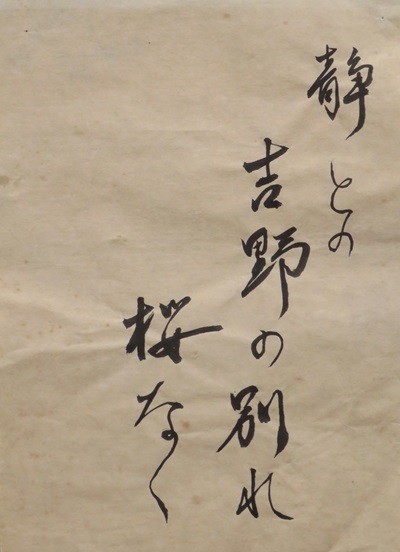 静との
吉野の別れ
桜なく